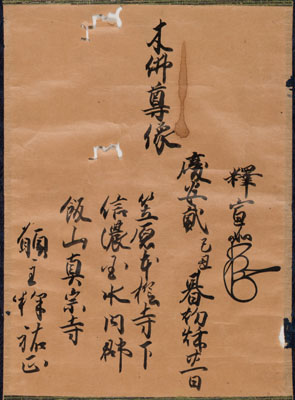 釋宣如
慶安貳己丑暮初穐廿一日
木佛尊像
笠原本誓寺下
信濃国水内郡
飯山真宗寺
願主釋祐正